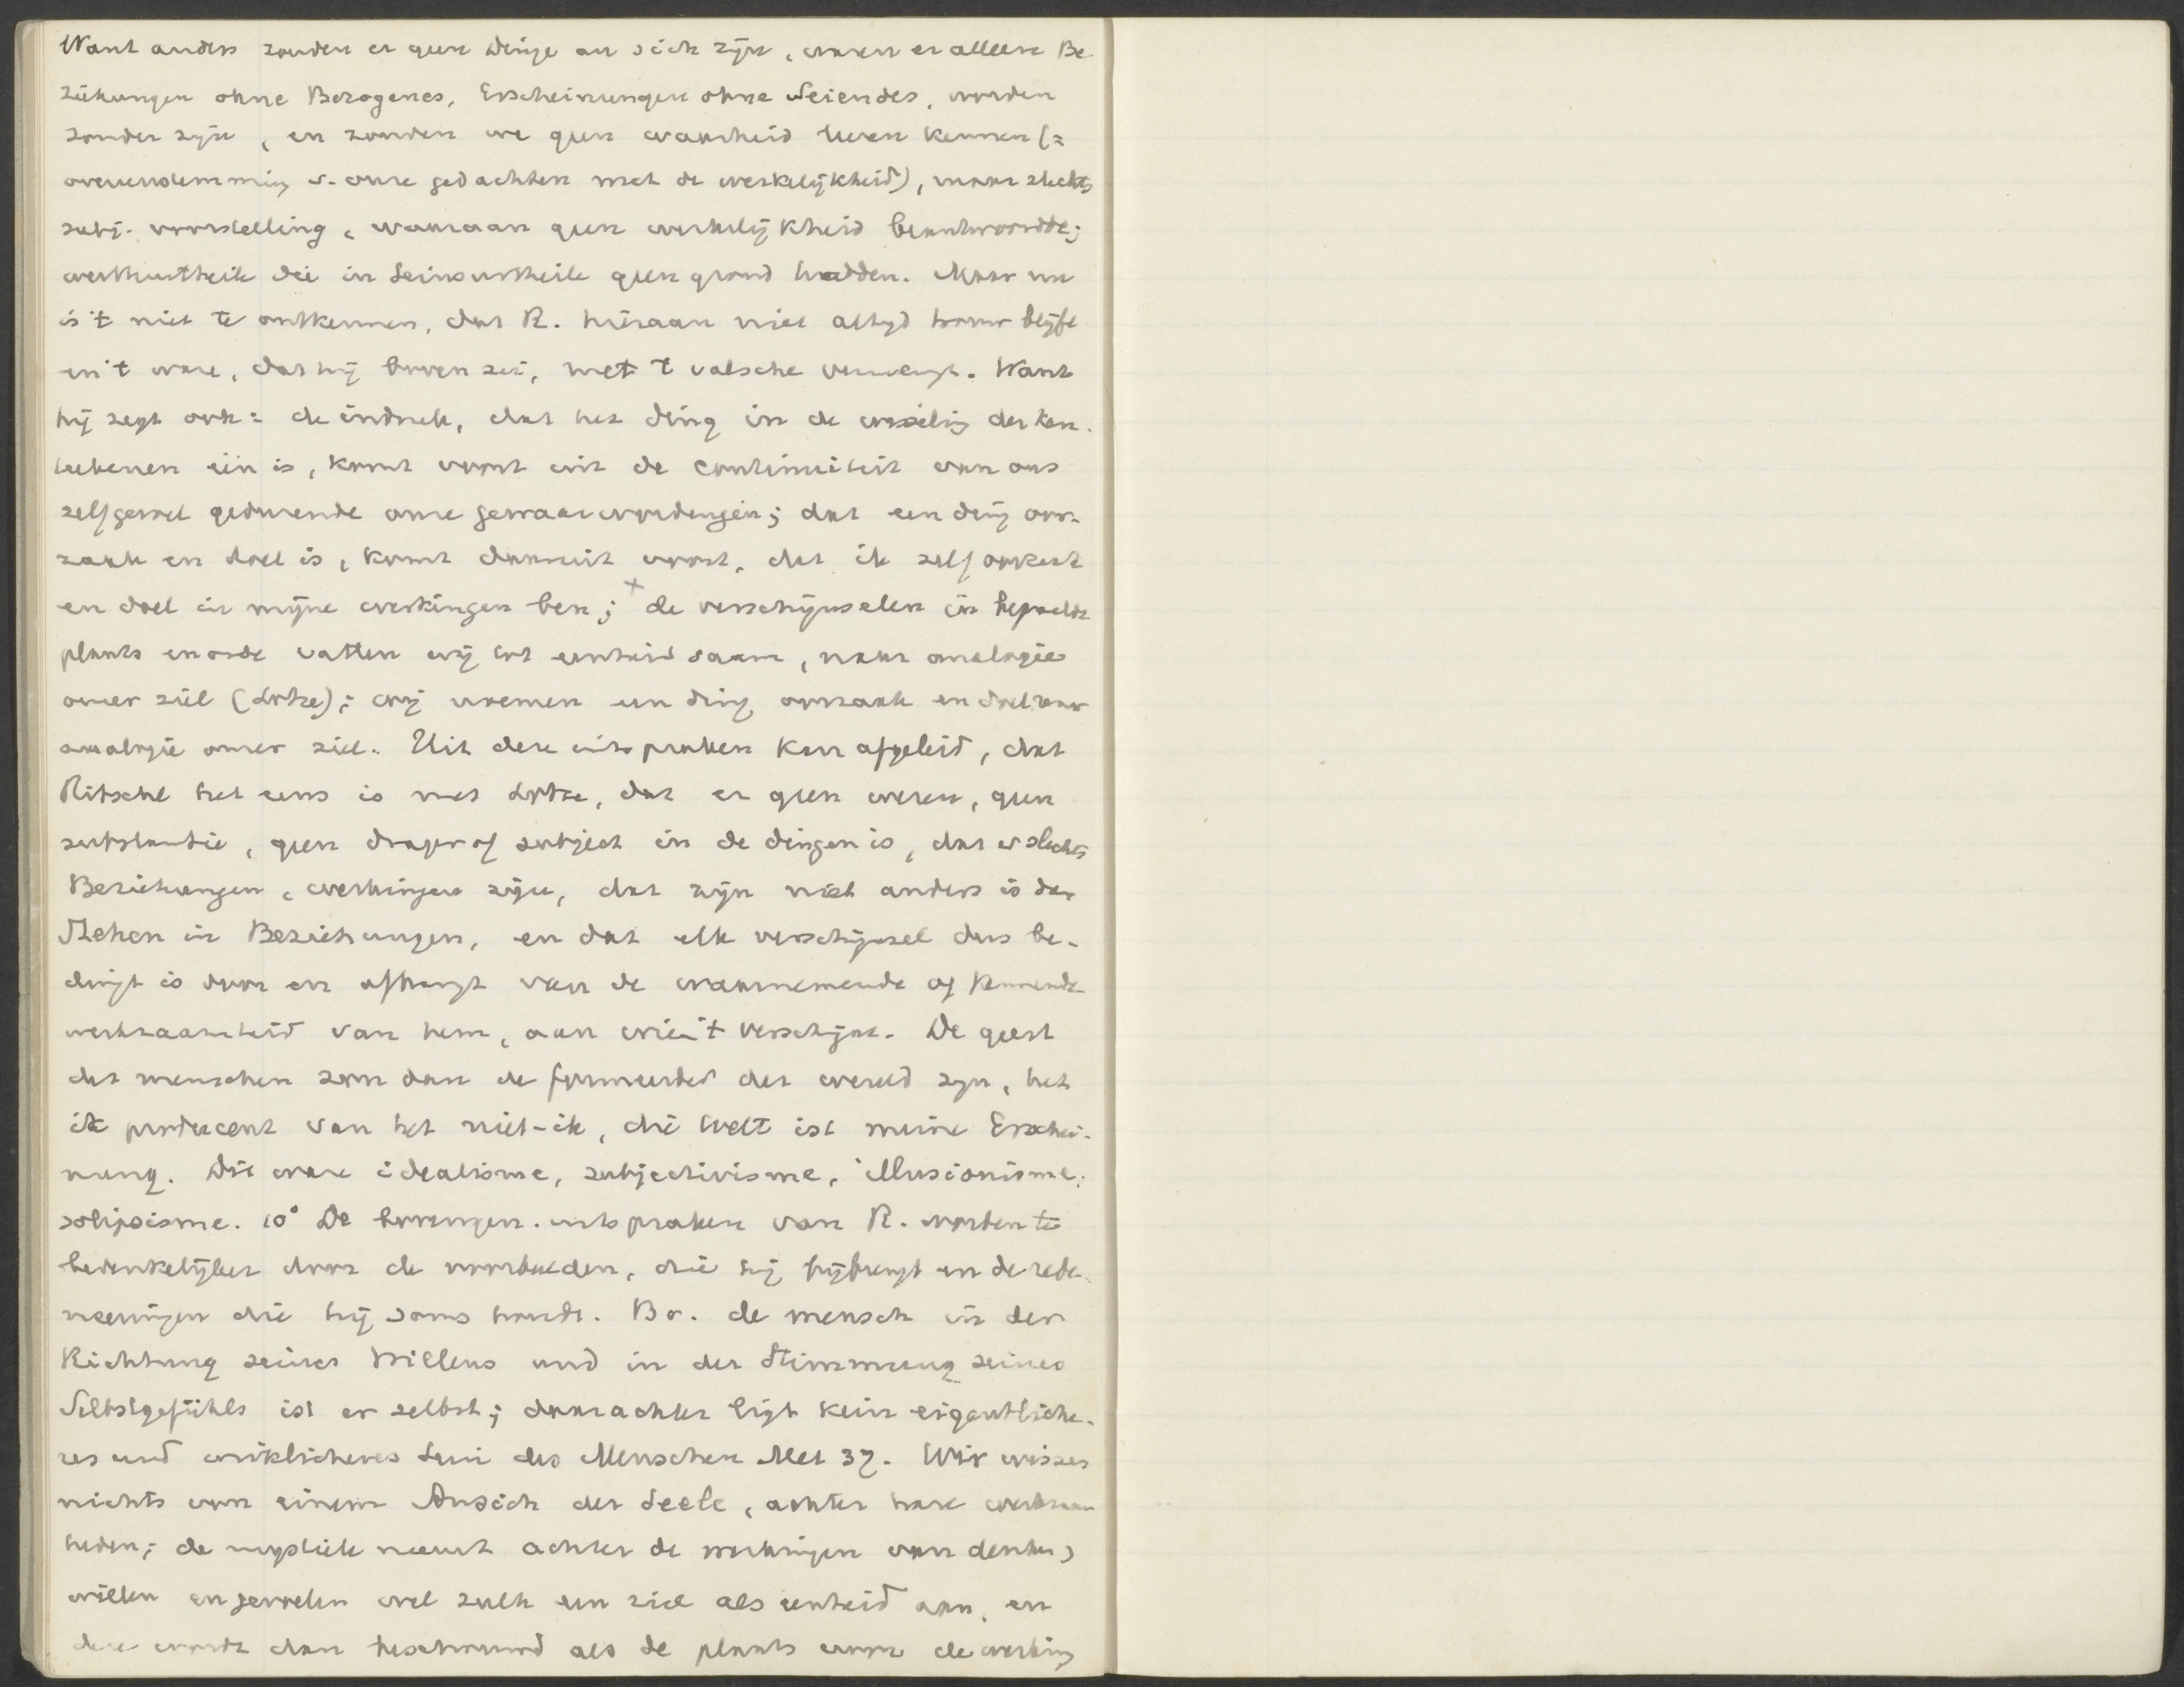 Want anders zouden er geen Dinge an sich zijn, waren er alleen Be
ziehungen ohne Bezogenes, Erscheinungen ohne Seiendes, worden
zonder zijn, en zouden we geen waarheid leeren kennen (=
overeenstemming v. onze gedachten met de werkelijkheid), maar slechts
subj. voorstelling, waaraan geen werkelijkheid beantwoordde;
werthurtheile die in Seinsurtheile geen grond hadden. Maar nu
is 't niet te ontkennen, dat R. hieraan niet altijd trouw blijft
en 't ware, dat hij boven zei, met 't valsche vermengt. Want
hij zegt ook: de indruk, dat het ding in de wisseling der ken-
teekenen één is, komt voort uit de continuiteit van ons
zelfgevoel gedurende onze gewaarwordingen; dat een ding oor-
zaak en doel is, komt daaruit voort, dat ik zelf oorzaak
en doel in mijne werkingen ben; + de verschijnselen in bepaalde
plaats en orde vatten wij tot eenheid saam, naar analogie
onzer ziel (Lotze); wij noemen een ding oorzaak en doel naar
analogie onzer ziel. Uit deze uitspraken kan afgeleid, dat
Ritschl het eens is met Lotze, dat er geen wezen, geen
substantie, geen drager of subject in de dingen is, dat er slechts
Beziehungen, werkingen zijn, dat zijn niet anders is dan
Stehen in Beziehungen, en dat elk verschijnsel dus be-
dingt is door en afhangt van de waarnemende of kennende
werkzaamheid van hem, aan wie 't verschijnt. De geest
des menschen zou dan de formeerder der wereld zijn, het
ik producent van het niet-ik, die Welt ist meine Erschei-
nung. Dit ware idealisme, subjectivisme, illusionisme,
solipsisme. 10° De bovengen. uitspraken van R. worden te
bedenkelijker door de voorbeelden, die hij bijbrengt en de rede-
neeringen die hij soms houdt. Bv. de mensch in der
Richtung seines Willens und in der Stimmung seines
Selbstgefühls ist er selbst; daarachter ligt kein eigentliche-
res und wirklicheres Sein des Menschen Met 37. Wir wissen
nichts von einem Ansich der Seele, achter hare werkzaam
heden; de mystiek neemt achter de werkingen van denken,
willen en gevoelen wel zulk een ziel als eenheid aan, en
deze wordt dan beschouwd als de plaats voor de werking